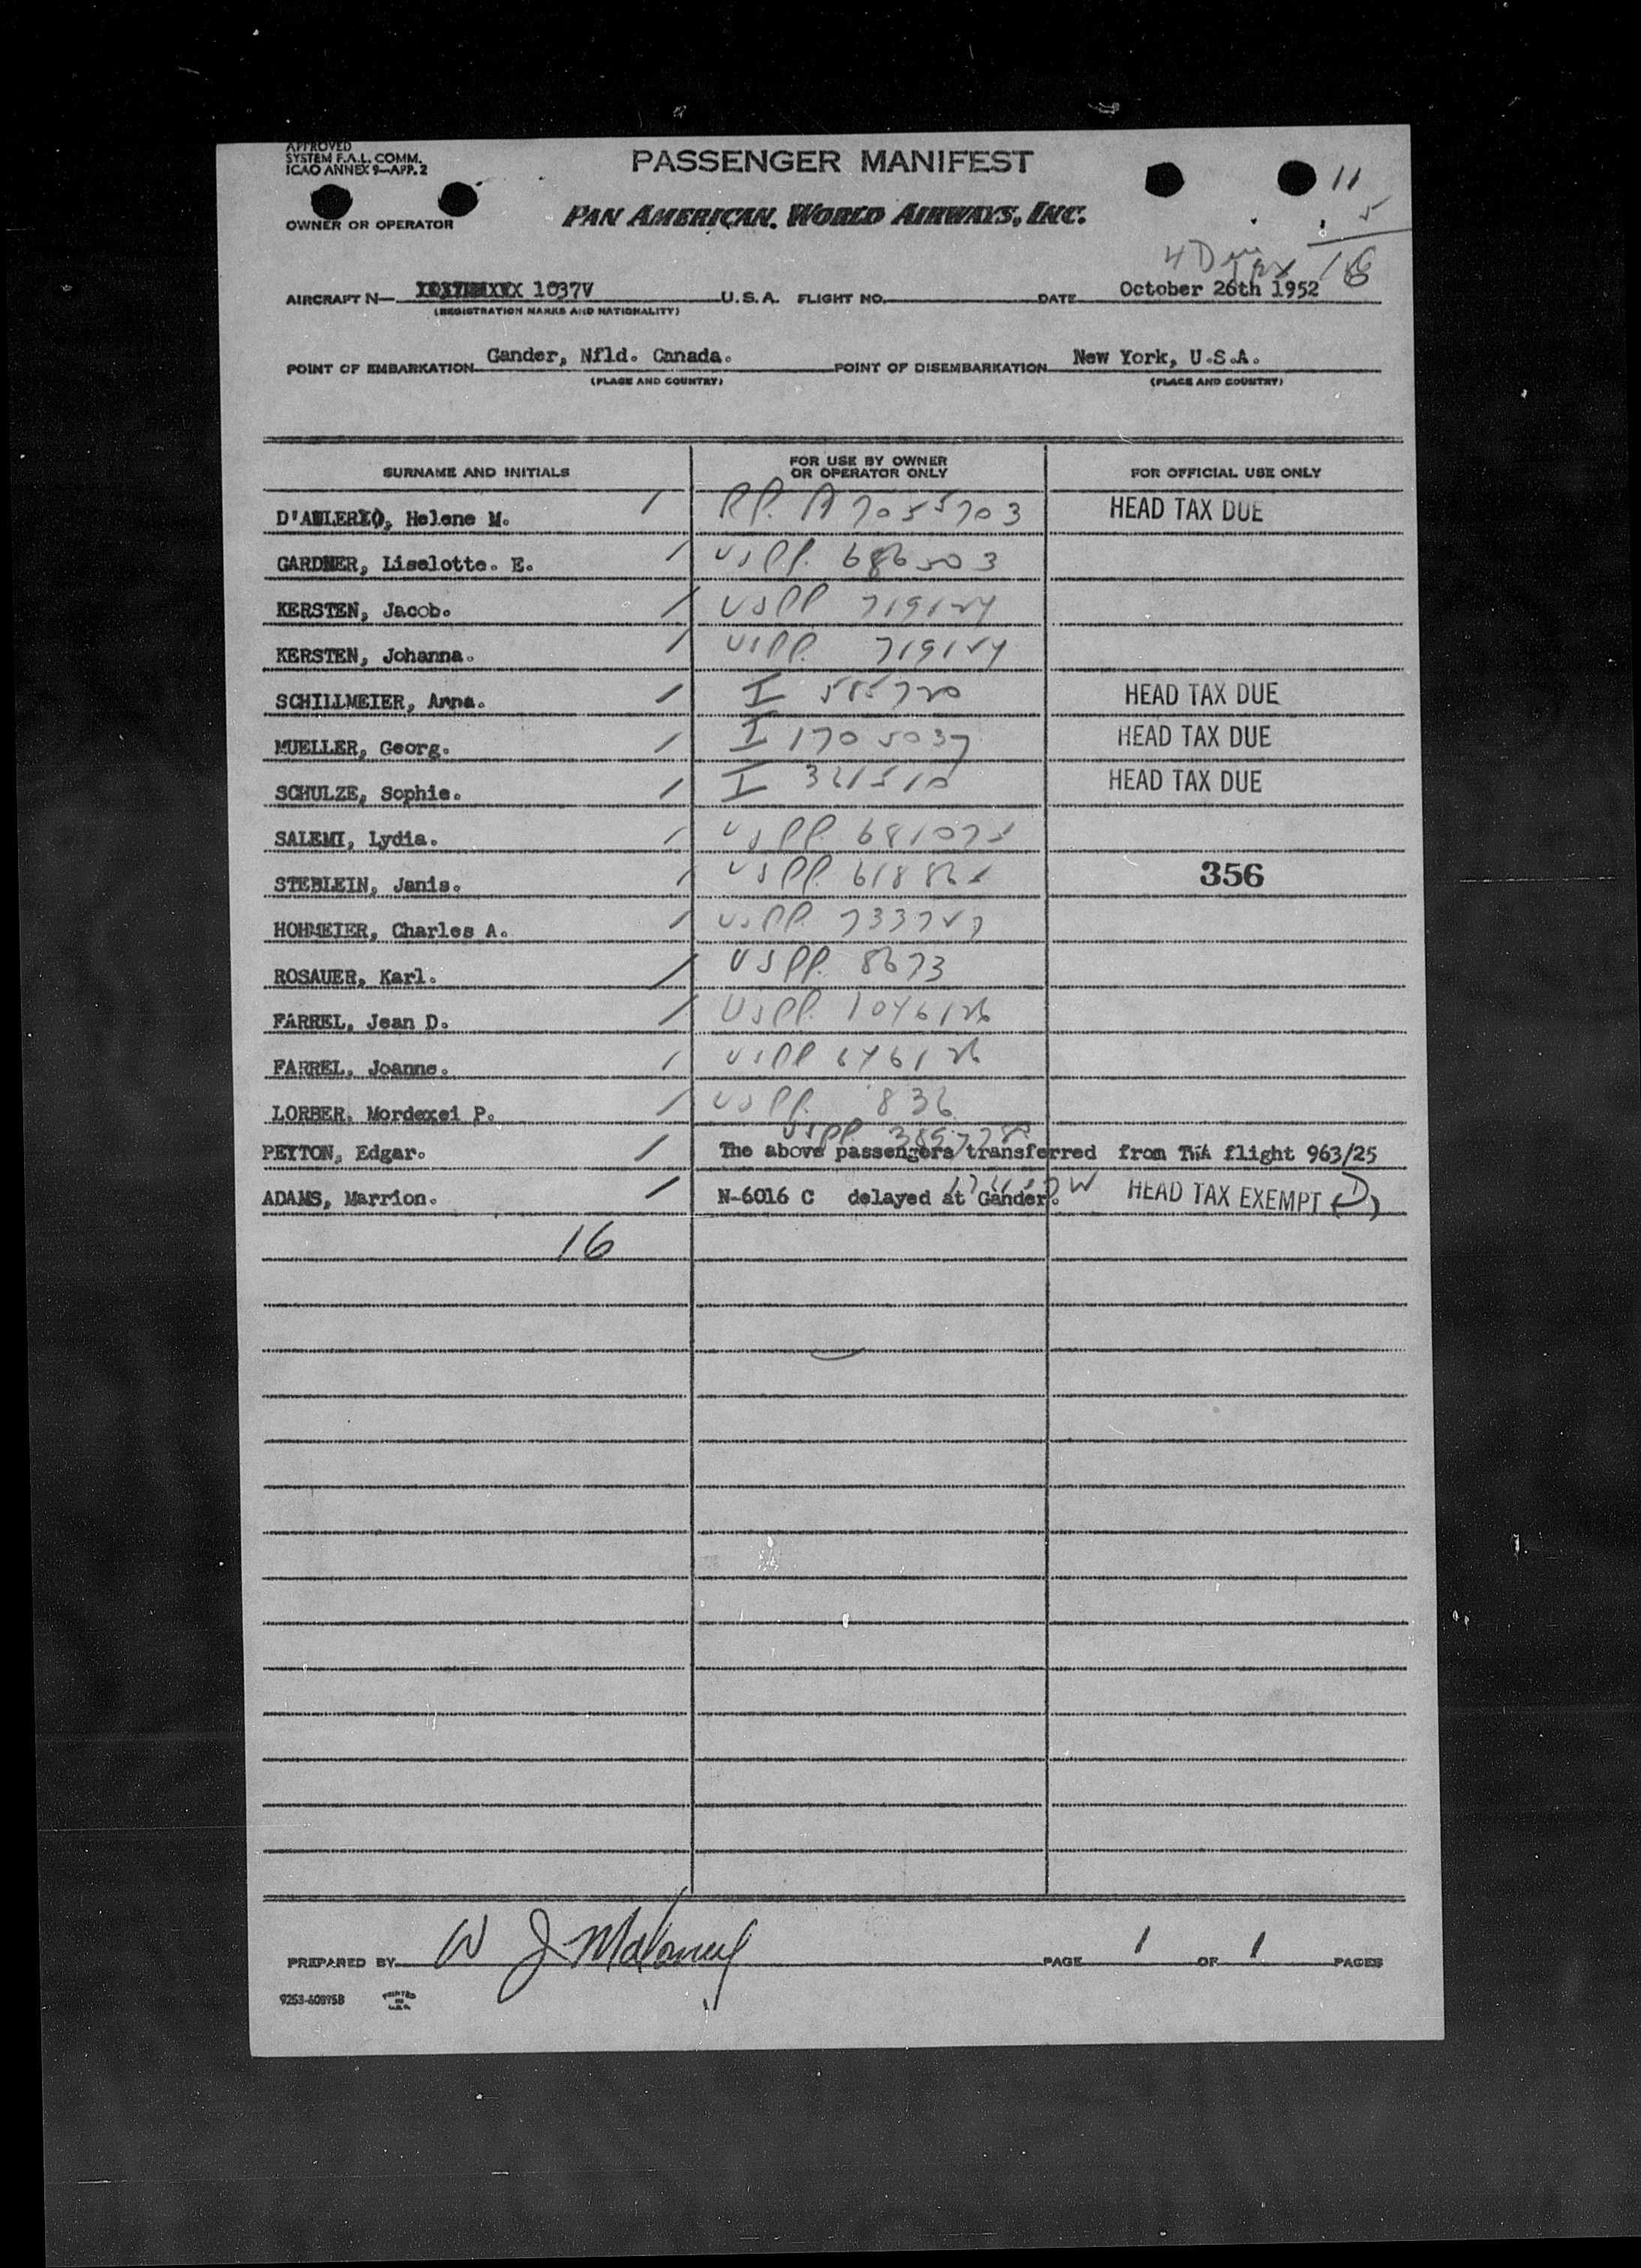 APPROVED
SYSTEM F.A.L. COMM.
ICAO ANNEX 9—APP. 2
PASSENGER MANIFEST
11
OWNER OR OPERATOR
PAN AMERICAN WORLD AIRWAYS, INC.
5
4 Due
16
AIRCRAFT N— 1037V U.S.A. FLIGHT NO. DATE October 26th 1952
(REGISTRATION MARKS AND NATIONALITY)
POINT OF EMBARKATION Gander, Nfld. Canada. POINT OF DISEMBARKATION New York, U.S.A.
(PLACE AND COUNTRY) (PLACE AND COUNTRY)
SURNAME AND INITIALS FOR USE BY OWNER OR OPERATOR ONLY FOR OFFICIAL USE ONLY
Helene M. / RP. A7055703 HEAD TAX DUE
GARDNER, Liselotte. E. / USPP. 686503
KERSTEN, Jacob. / USPP 719124
KERSTEN, Johanna. / USPP. 719124
SCHILLMEIER, Anna. / I 585720 HEAD TAX DUE
MUELLER, Georg. / I 1705037 HEAD TAX DUE
SCHULZE, Sophie. / I 321510 HEAD TAX DUE
SALEMI, Lydia. / USPP. 681075
STEBLEIN, Janis. / USPP. 356
HOHMEIER, Charles A. / USPP. 733727
ROSAUER, Karl. / USPP. 8673
FARREL, Jean D. / USPP. 1046126
FARREL, Joanne. / USPP
LORBER, Mordexei P. / USPP. 836
USPP
PEYTON, Edgar. / The above passengers transferred from TWA flight 963/25
ADAMS, Marrion. / N-6016 C delayed at Gander. HEAD TAX EXEMPT
16
PREPARED BY W J Maloney PAGE 1 OF 1 PAGES
9253-60875B PRINTED IN U.S.A.